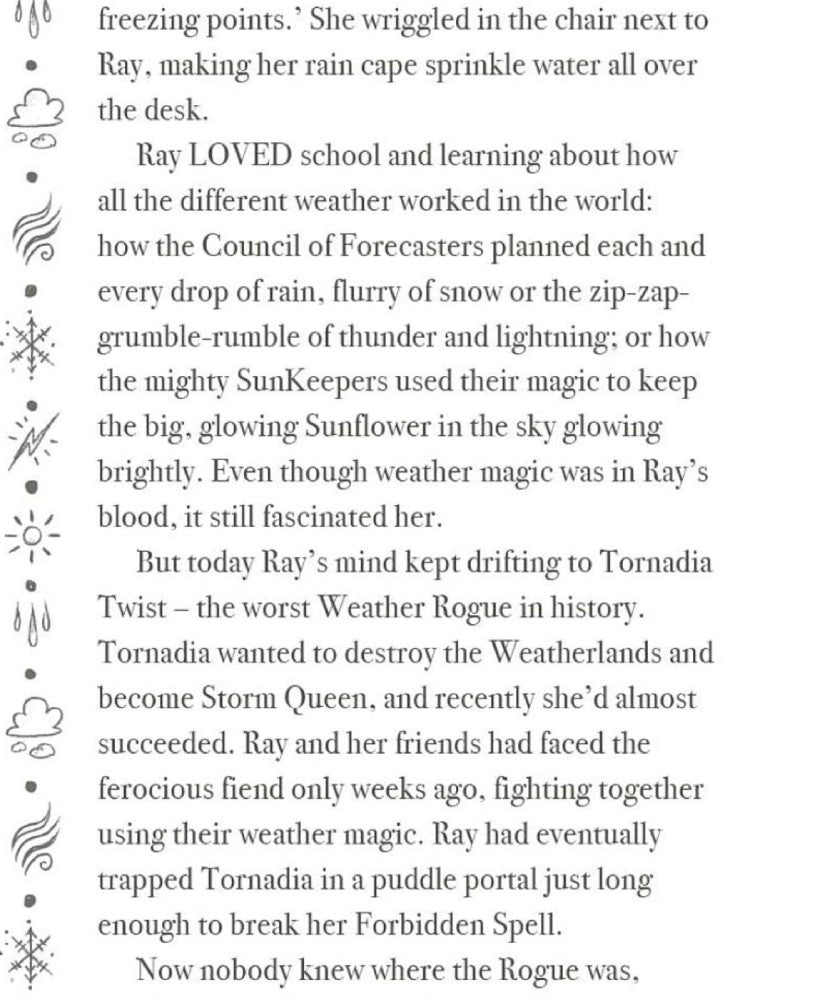 freezing points.’ She wriggled in the chair next to
Ray, making her rain cape sprinkle water all over
the desk.
Ray LOVED school and learning about how
all the different weather worked in the world:
how the Council of Forecasters planned each and
every drop of rain, flurry of snow or the zip-zap-
grumble-rumble of thunder and lightning; or how
the mighty SunKeepers used their magic to keep
the big, glowing Sunflower in the sky glowing
brightly. Even though weather magic was in Ray’s
blood, it still fascinated her.
But today Ray’s mind kept drifting to Tornadia
Twist – the worst Weather Rogue in history.
Tornadia wanted to destroy the Weatherlands and
become Storm Queen, and recently she’d almost
succeeded. Ray and her friends had faced the
ferocious fiend only weeks ago, fighting together
using their weather magic. Ray had eventually
trapped Tornadia in a puddle portal just long
enough to break her Forbidden Spell.
Now nobody knew where the Rogue was,